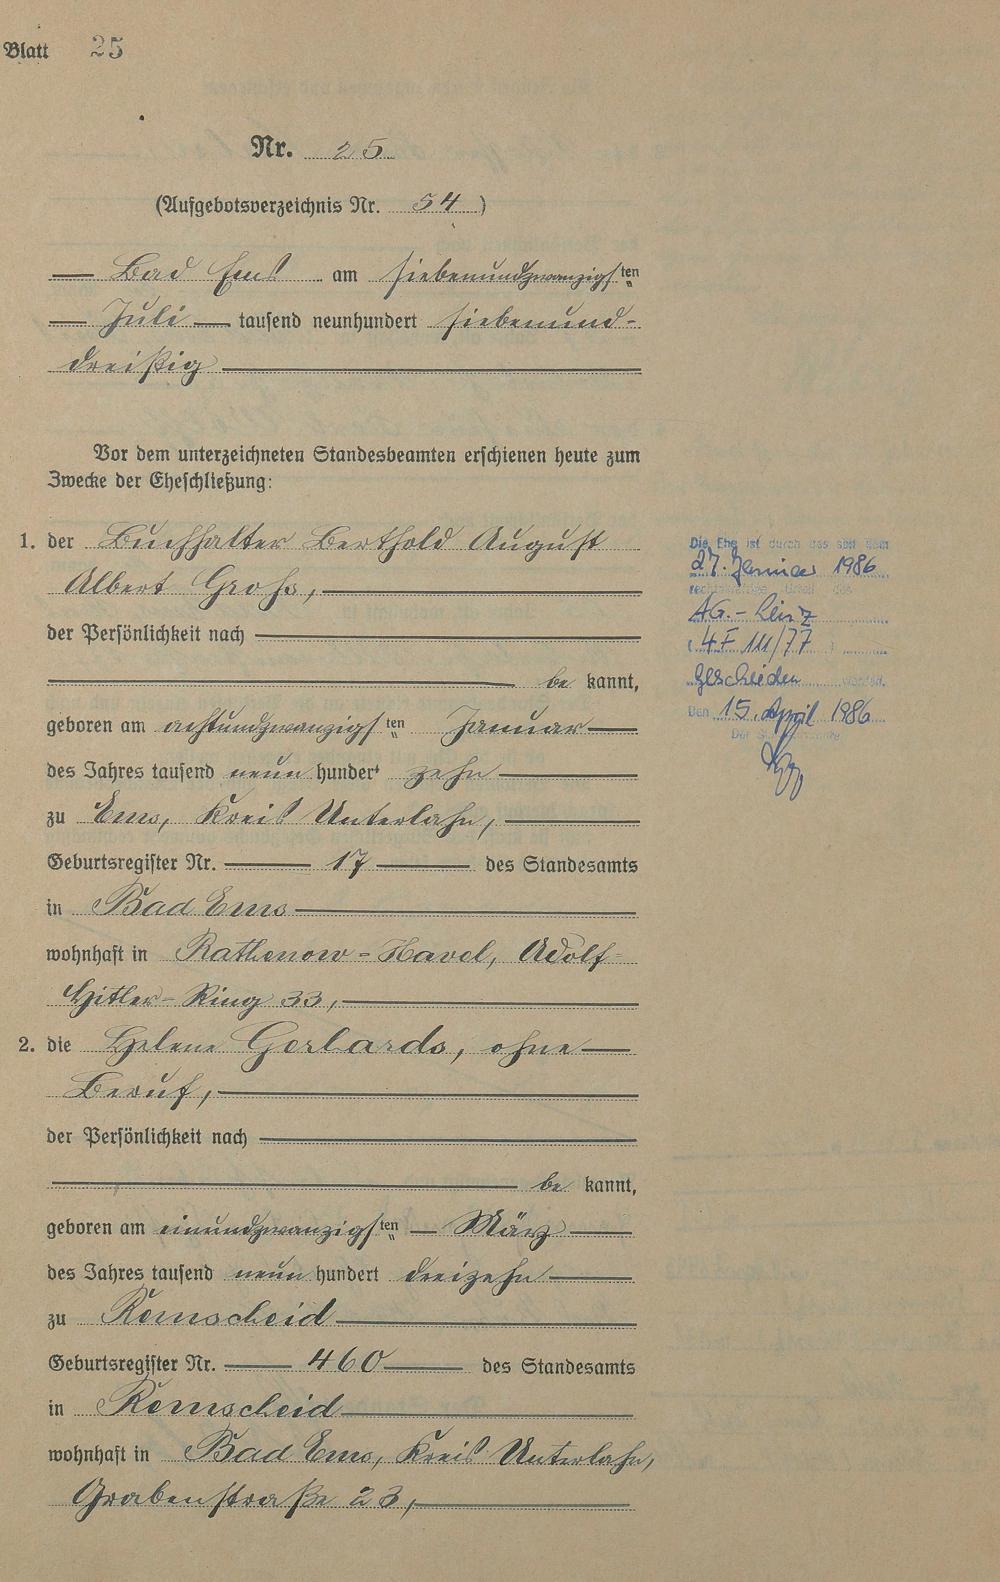 Blatt 25
Nr. 25
(Aufgebotsverzeichnis Nr. 54)
Bad Ems am siebenundzwanzigsten
Juli tausend neunhundert siebenund-
dreißig
Vor dem unterzeichneten Standesbeamten erschienen heute zum
Zwecke der Eheschließung:
1. der Buchhalter Berthold August
Albert Grohs,
der Persönlichkeit nach
be kannt,
geboren am achtundzwanzigsten Januar
des Jahres tausend neun hundert zehn
zu Ems, Kreis Unterlahn,
Geburtsregister Nr. 17 des Standesamts
in Bad Ems
wohnhaft in Rathenow-Havel, Adolf-
Hitler-Ring 33,
2. die Helene Gerhards, ohne
Beruf,
der Persönlichkeit nach
be kannt,
geboren am einundzwanzigsten März
des Jahres tausend neun hundert dreizehn
zu Remscheid
Geburtsregister Nr. 460 des Standesamts
in Remscheid
wohnhaft in Bad Ems, Kreis Unterlahn,
Grabenstraße 23,
Die Ehe ist durch das seit dem
27. Januar 1986
rechtskräftige Urteil des
AG.- Linz
(4 F 111/77)
geschieden worden.
Den 15. April 1986
Der Standesbeamte